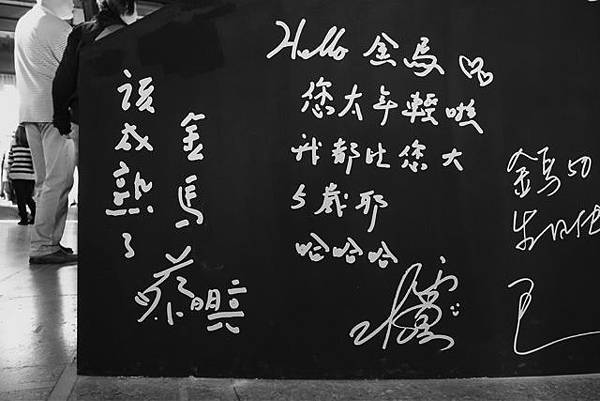 金馬
該成熟了
蔡明亮
Hello 金馬
您太年輕啦
我都比您大
5歲耶
哈哈哈
金馬50
生日快